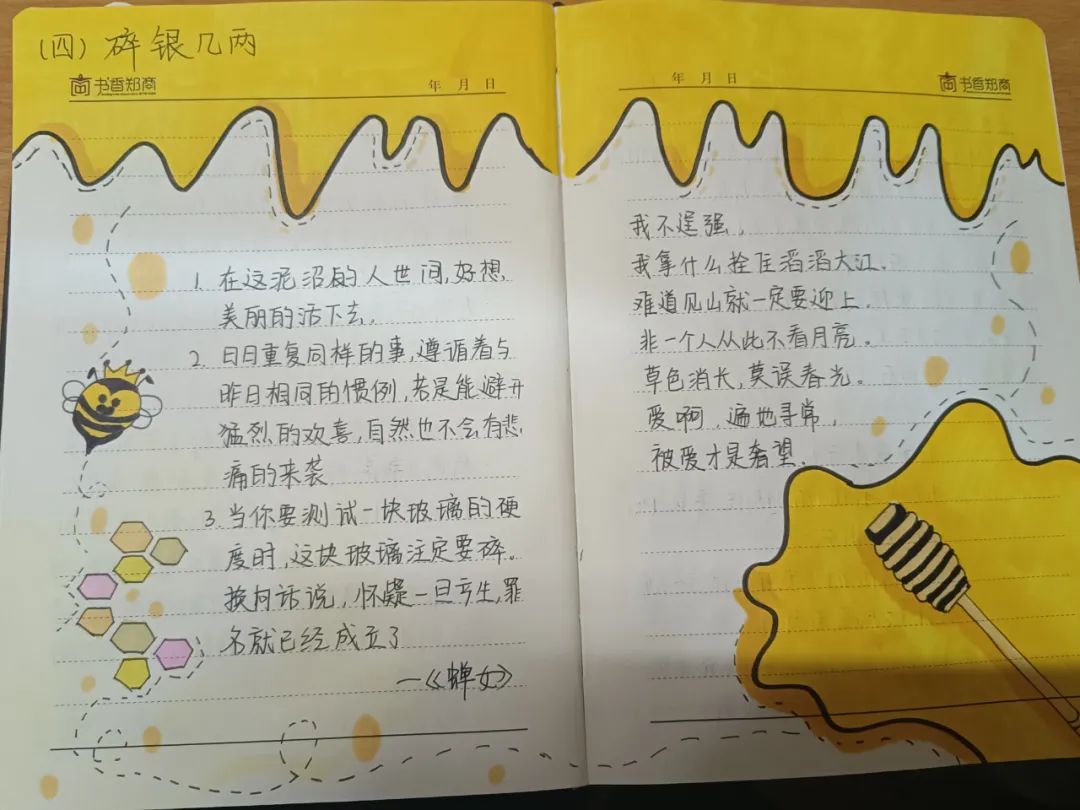 (四) 碎银几两
书香知商
年 月 日
1. 在这泥沼的人世间,好想,
美丽的活下去。
2. 日日重复同样的事,遵循着与
昨日相同的惯例,若是能避开
猛烈的欢喜,自然也不会有悲
痛的来袭
3. 当你要测试一块玻璃的硬
度时,这块玻璃注定要碎。
换句话说,怀疑一旦产生,罪
名就已经成立了
—《蝉女》
年 月 日
书香知商
我不逞强,
我拿什么拴住滔滔大江。
难道见山就一定要迎上,
非一个人从此不看月亮。
草色消长,莫误春光。
爱啊,遍地寻常,
被爱才是奢望。